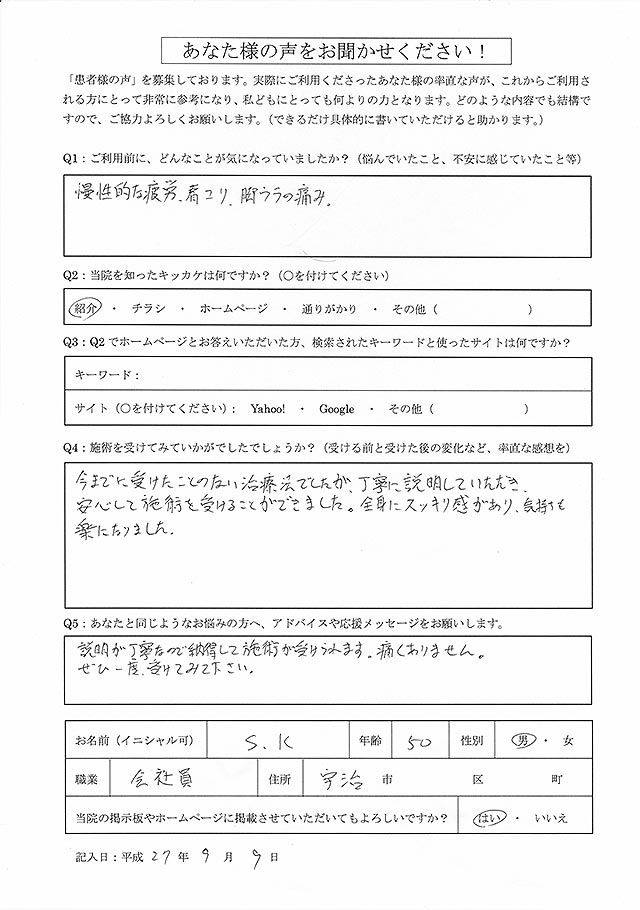 あなた様の声をお聞かせください！
「患者様の声」を募集しております。実際にご利用くださったあなた様の率直な声が、これからご利用さ
れる方にとって非常に参考になり、私どもにとっても何よりの力となります。どのような内容でも結構で
すので、ご協力よろしくお願いします。（できるだけ具体的に書いていただけると助かります。）
Q1：ご利用前に、どんなことが気になっていましたか？（悩んでいたこと、不安に感じていたこと等）
慢性的な疲労、肩コリ、胸ウラの痛み。
Q2：当院を知ったキッカケは何ですか？（○を付けてください）
紹介 ・ チラシ ・ ホームページ ・ 通りがかり ・ その他（ ）
Q3：Q2でホームページとお答えいただいた方、検索されたキーワードと使ったサイトは何ですか？
キーワード：
サイト（○を付けてください）： Yahoo! ・ Google ・ その他（ ）
Q4：施術を受けてみていかがでしたでしょうか？（受ける前と受けた後の変化など、率直な感想を）
今までに受けたことのない治療法でしたが、丁寧に説明していただき、
安心して施術を受けることができました。全身にスッキリ感があり、気持ちも
楽になりました。
Q5：あなたと同じようなお悩みの方へ、アドバイスや応援メッセージをお願いします。
説明が丁寧なので納得して施術が受けられます。痛くありません。
ぜひ一度、受けてみて下さい。
お名前（イニシャル可） S.K 年齢 50 性別 男 ・ 女
職業 会社員 住所 宇治 市 区 町
当院の掲示板やホームページに掲載させていただいてもよろしいですか？ はい ・ いいえ
記入日：平成 27 年 9 月 9 日